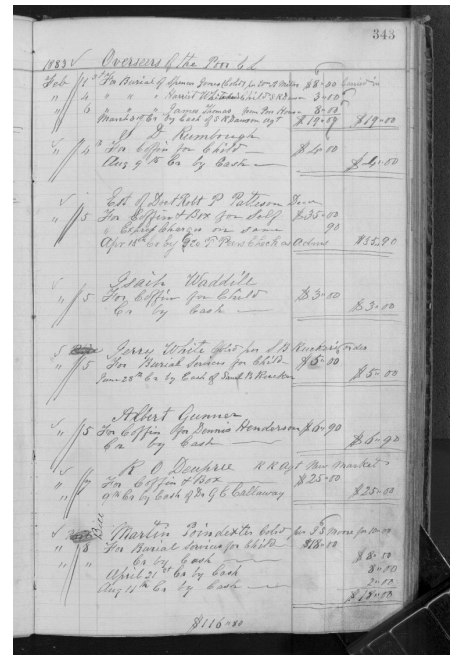 343
1883 Overseers of the Poor C. L.
Feb 1st For Burial of Spencer Jones $8-00
" 4 " " " Harriet child S R Dawson 3-00
6 " " " James Thomas from Poor House 8-00
March Cr By Cash of S R Dawson agt $19-00 $19-00
D Rumbough
" 4th For Coffin for Child $4-00
Aug 9th Cr by Cash $4-00
Est of Doct Robt P Patteson Decd
" 5 For Coffin & Box for Self $35-00
" Express Charges on same 90
Apr 18th Cr by Geo T Check as Admr $35.90
Isaih Waddill
" 5 For Coffin for Child $3-00
Cr by Cash $3-00
Jerry White Cold per S B Rucker's order
" 5 For Burial Services for Child $5-00
June 28th Cr by Cash of Saml B Rucker $5-00
Albert Gunner
" 5 For Coffin for Dennis Henderson $6-90
Cr by Cash $6-90
R O Deupree R R Agt New Market
" 7 For Coffin & Box $25-00
" 9th Cr by Cash of Dr G E Callaway $25-00
Bill
Martin Poindexter Cold per J S Moore for 10-00
" 8 For Burial Services for Child $18-00
Cr by Cash $8-00
April 21st Cr by Cash 8-00
Aug 11th Cr by Cash 2-00
$18-00
$116-80